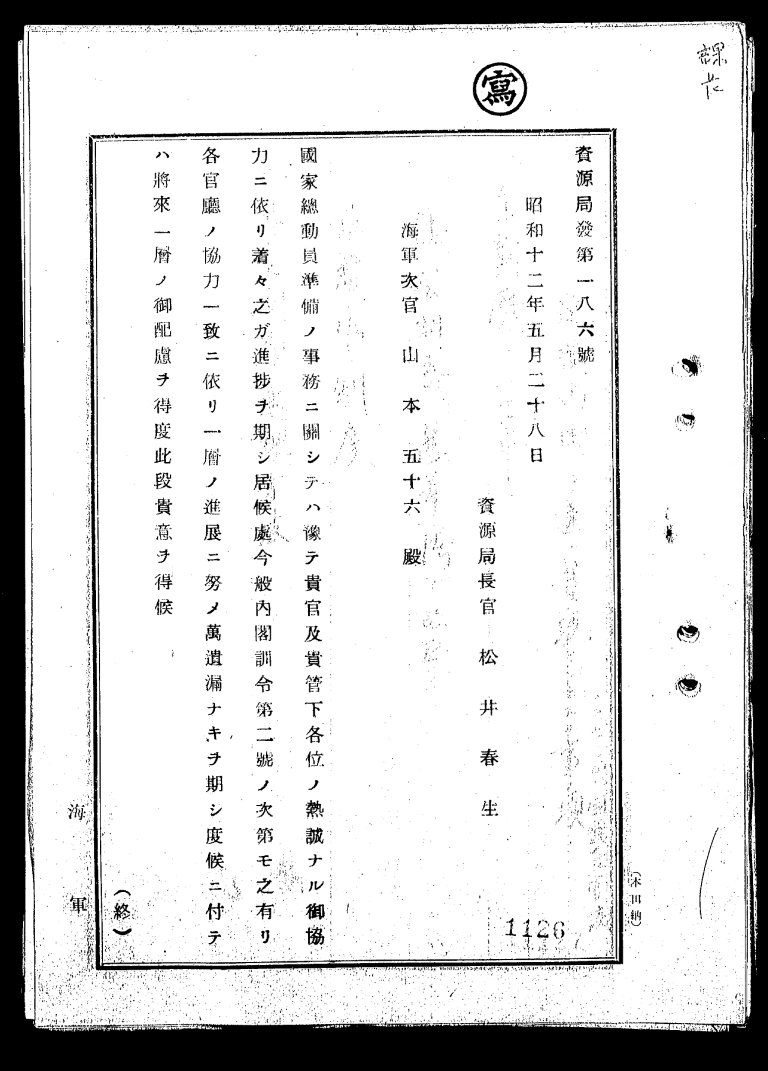 寫
課長
資源局發第一八六號
昭和十二年五月二十八日
資源局長官 松井春生
海軍次官 山本五十六殿
國家總動員準備ノ事務ニ關シテハ豫テ貴官及貴管下各位ノ熱誠ナル御協
力ニ依リ着々之ガ進捗ヲ期シ居候處今般內閣訓令第二號ノ次第モ之有リ
各官廳ノ協力一致ニ依リ一層ノ進展ニ努メ萬遺漏ナキヲ期シ度候ニ付テ
ハ將來一層ノ御配慮ヲ得度此段貴意ヲ得候
(終)
海軍
(本田納)
1126